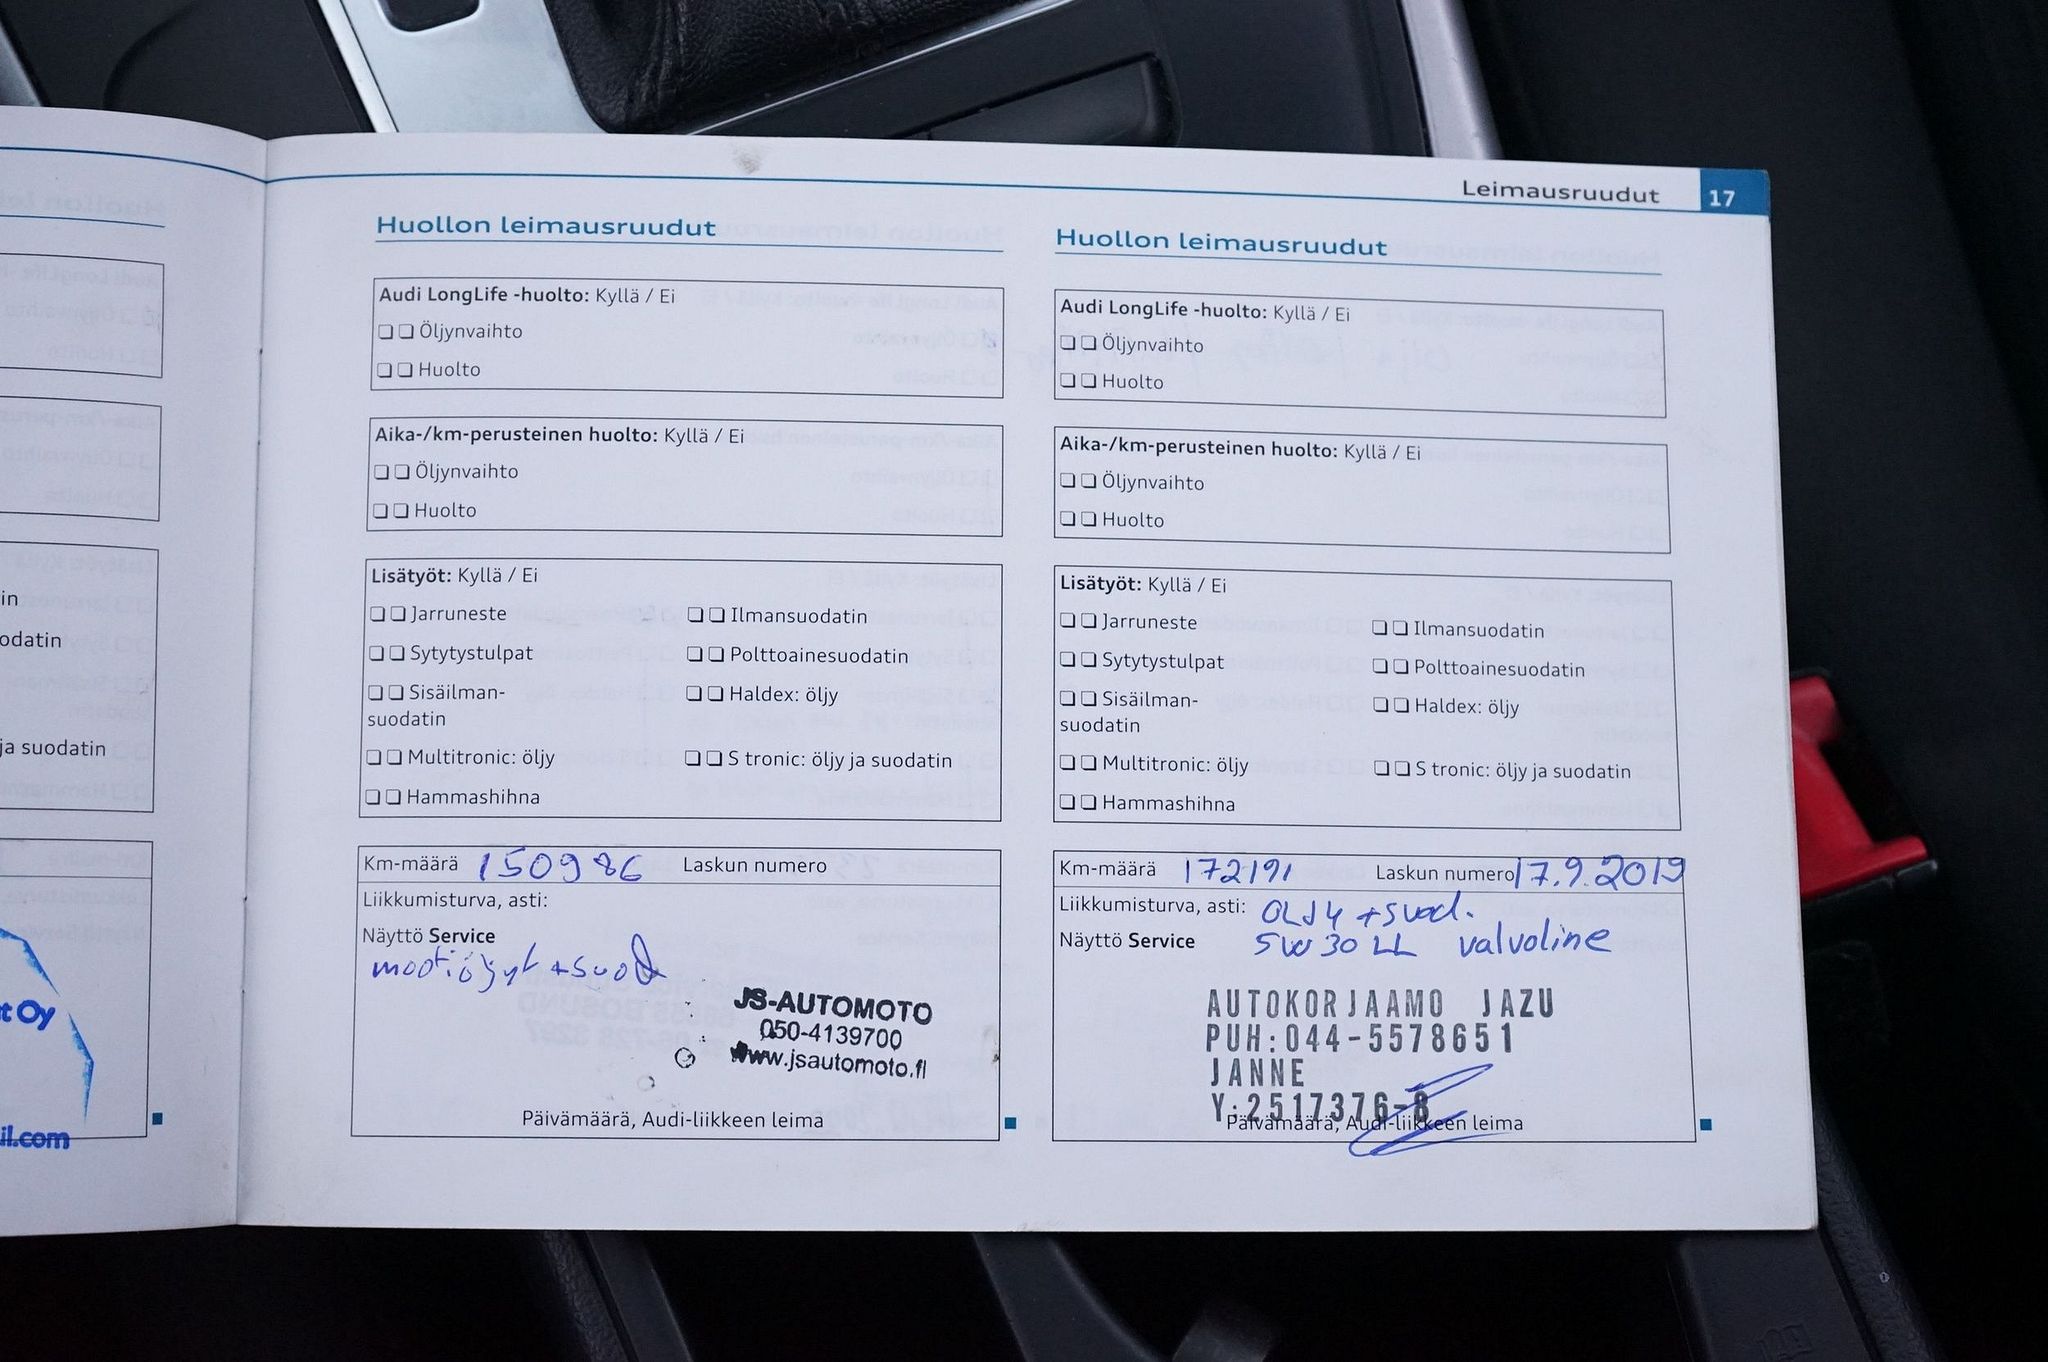 Leimausruudut 17
in
odatin
ja suodatin
t Oy
il.com
Huollon leimausruudut
Audi LongLife -huolto: Kyllä / Ei
Öljynvaihto
Huolto
Aika-/km-perusteinen huolto: Kyllä / Ei
Öljynvaihto
Huolto
Lisätyöt: Kyllä / Ei
Jarruneste Ilmansuodatin
Sytytystulpat Polttoainesuodatin
Sisäilman- Haldex: öljy
suodatin
Multitronic: öljy S tronic: öljy ja suodatin
Hammashihna
Km-määrä 150986 Laskun numero
Liikkumisturva, asti:
Näyttö Service
moot.öljyt +suod
JS-AUTOMOTO
050-4139700
www.jsautomoto.fi
Päivämäärä, Audi-liikkeen leima
Huollon leimausruudut
Audi LongLife -huolto: Kyllä / Ei
Öljynvaihto
Huolto
Aika-/km-perusteinen huolto: Kyllä / Ei
Öljynvaihto
Huolto
Lisätyöt: Kyllä / Ei
Jarruneste Ilmansuodatin
Sytytystulpat Polttoainesuodatin
Sisäilman- Haldex: öljy
suodatin
Multitronic: öljy S tronic: öljy ja suodatin
Hammashihna
Km-määrä 172191 Laskun numero 17.9.2019
Liikkumisturva, asti: ÖLJY +suod.
Näyttö Service 5W30 LL valvoline
AUTOKORJAAMO JAZU
PUH:044-5578651
JANNE
Y:2517376-8
Päivämäärä, Audi-liikkeen leima